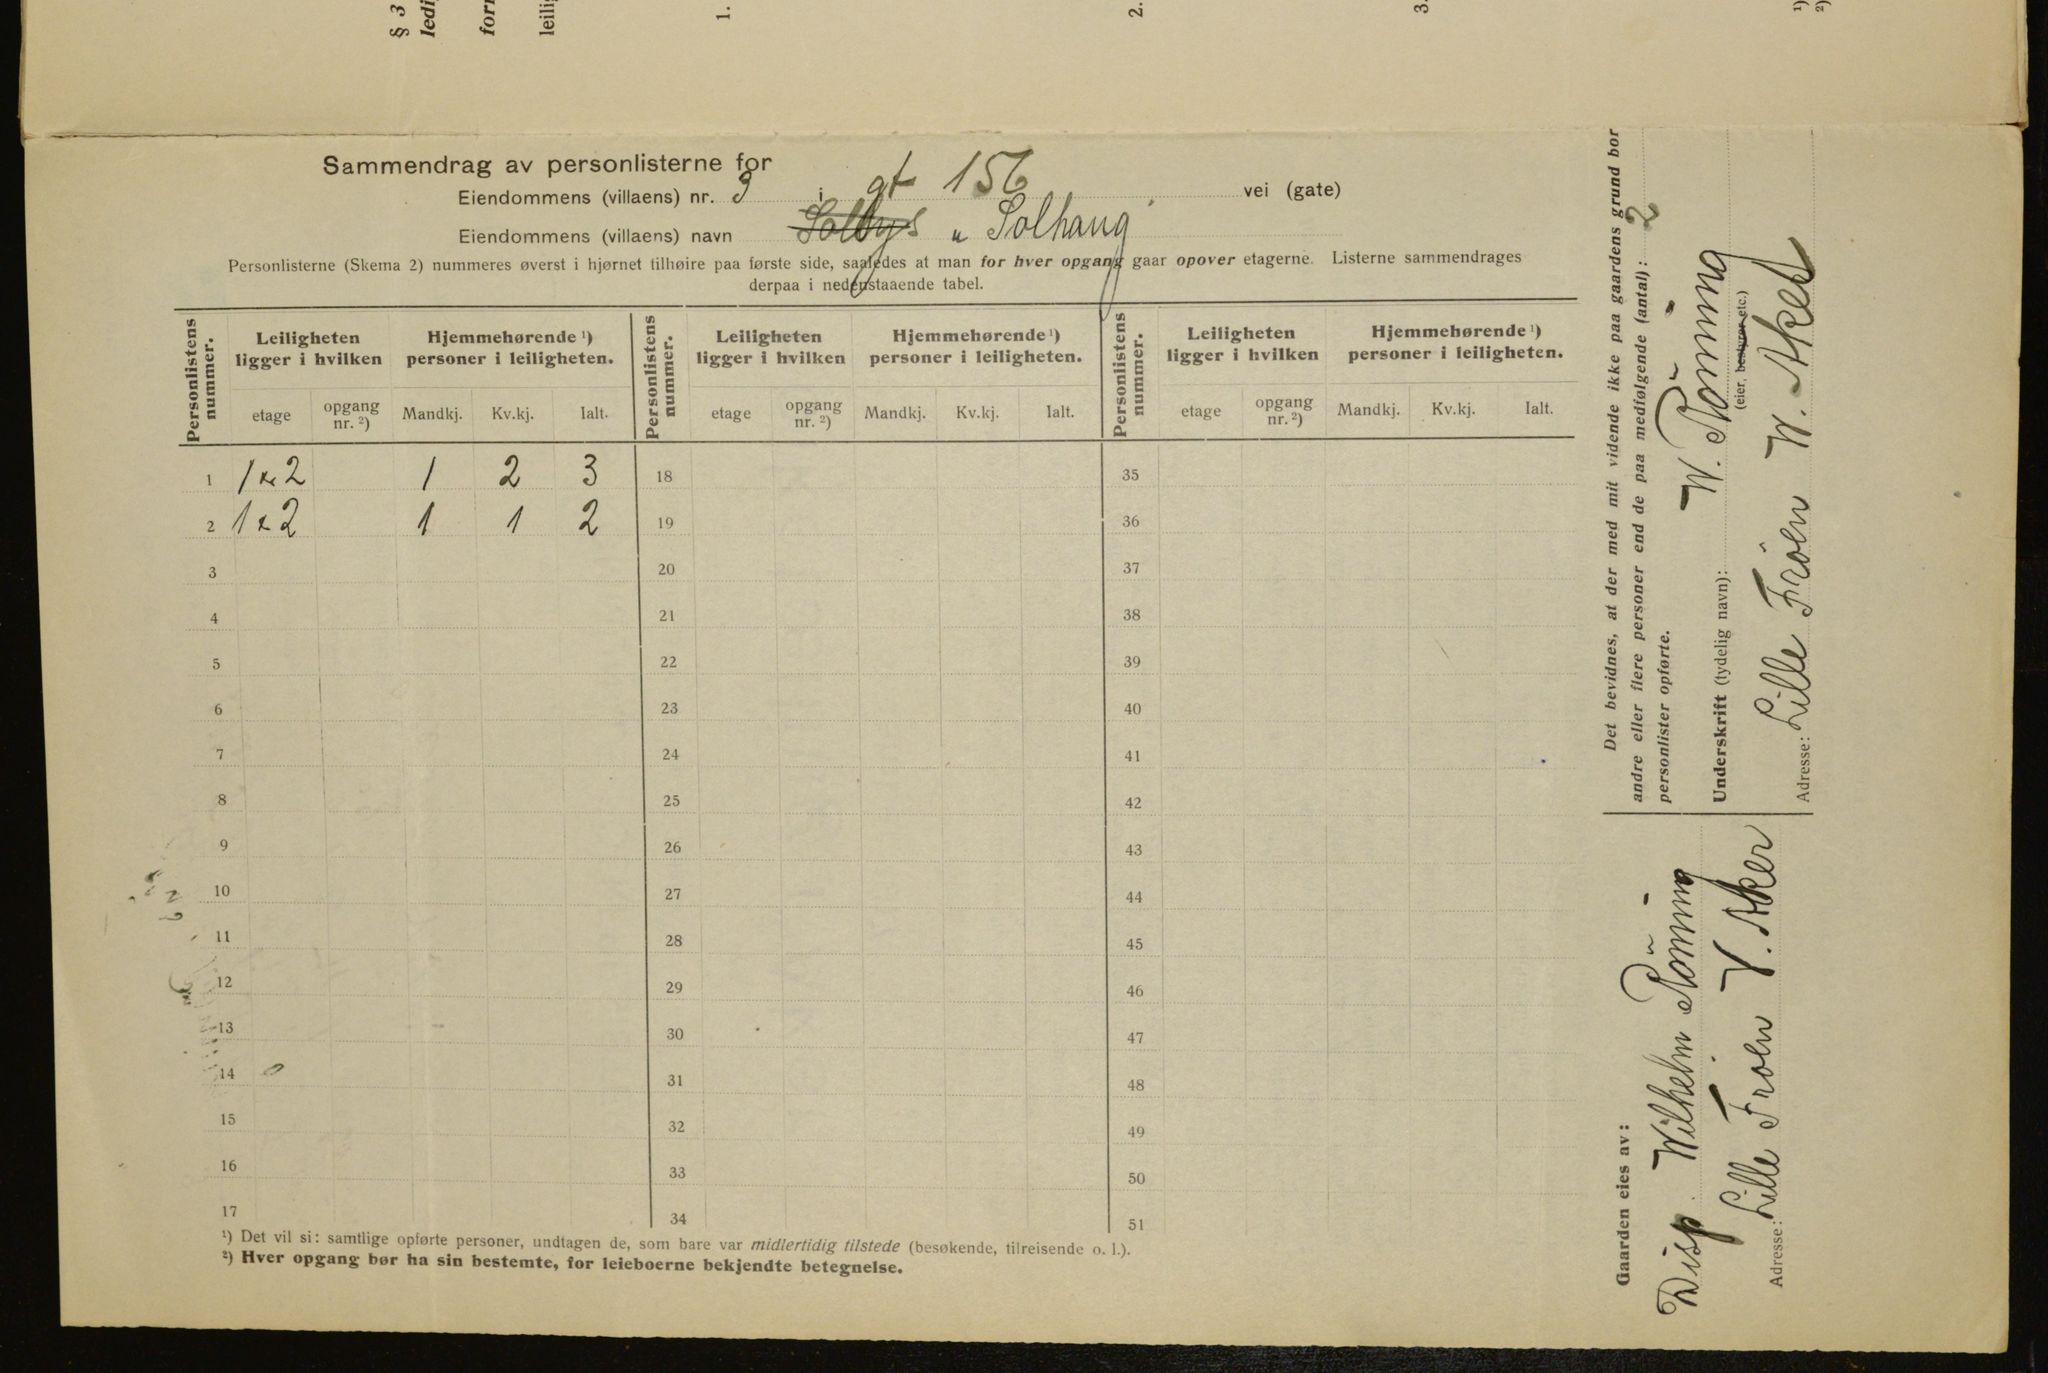 § 3
1.
2.
3.
1)
2)
Sammendrag av personlisterne for
Eiendommens (villaens) nr. 3 i gt 156 vei (gate)
Eiendommens (villaens) navn Solbys " Solhaug
Personlisterne (Skema 2) nummeres øverst i hjørnet tilhøire paa første side, saaledes at man for hver opgang gaar opover etagerne. Listerne sammendrages
derpaa i nedenstaaende tabel.
Personlistens nummer. Leiligheten ligger i hvilken Hjemmehørende ¹) personer i leiligheten. Personlistens nummer. Leiligheten ligger i hvilken Hjemmehørende ¹) personer i leiligheten. Personlistens nummer. Leiligheten ligger i hvilken Hjemmehørende ¹) personer i leiligheten.
etage opgang nr. ²) Mandkj. Kv.kj. Ialt. etage opgang nr. ²) Mandkj. Kv.kj. Ialt. etage opgang nr. ²) Mandkj. Kv.kj. Ialt.
1 1 x 2 1 2 3 18 35
2 1 x 2 1 1 2 19 36
3 20 37
4 21 38
5 22 39
6 23 40
7 24 41
8 25 42
9 26 43
10 27 44
11 28 45
12 29 46
13 30 47
14 31 48
15 32 49
16 33 50
17 34 51
¹) Det vil si: samtlige opførte personer, undtagen de, som bare var midlertidig tilstede (besøkende, tilreisende o. l.).
²) Hver opgang bør ha sin bestemte, for leieboerne bekjendte betegnelse.
Det bevidnes, at der med mit vidende ikke paa gaardens grund bor
andre eller flere personer end de paa medfølgende (antal): 2
personlister opførte.
Underskrift (tydelig navn): W. Rönning
(eier, bestyrer etc.)
Adresse: Lille Fröen W. Aker
Gaarden eies av:
Disp. Wilhelm Rönning
Adresse: Lille Fröen V. Aker